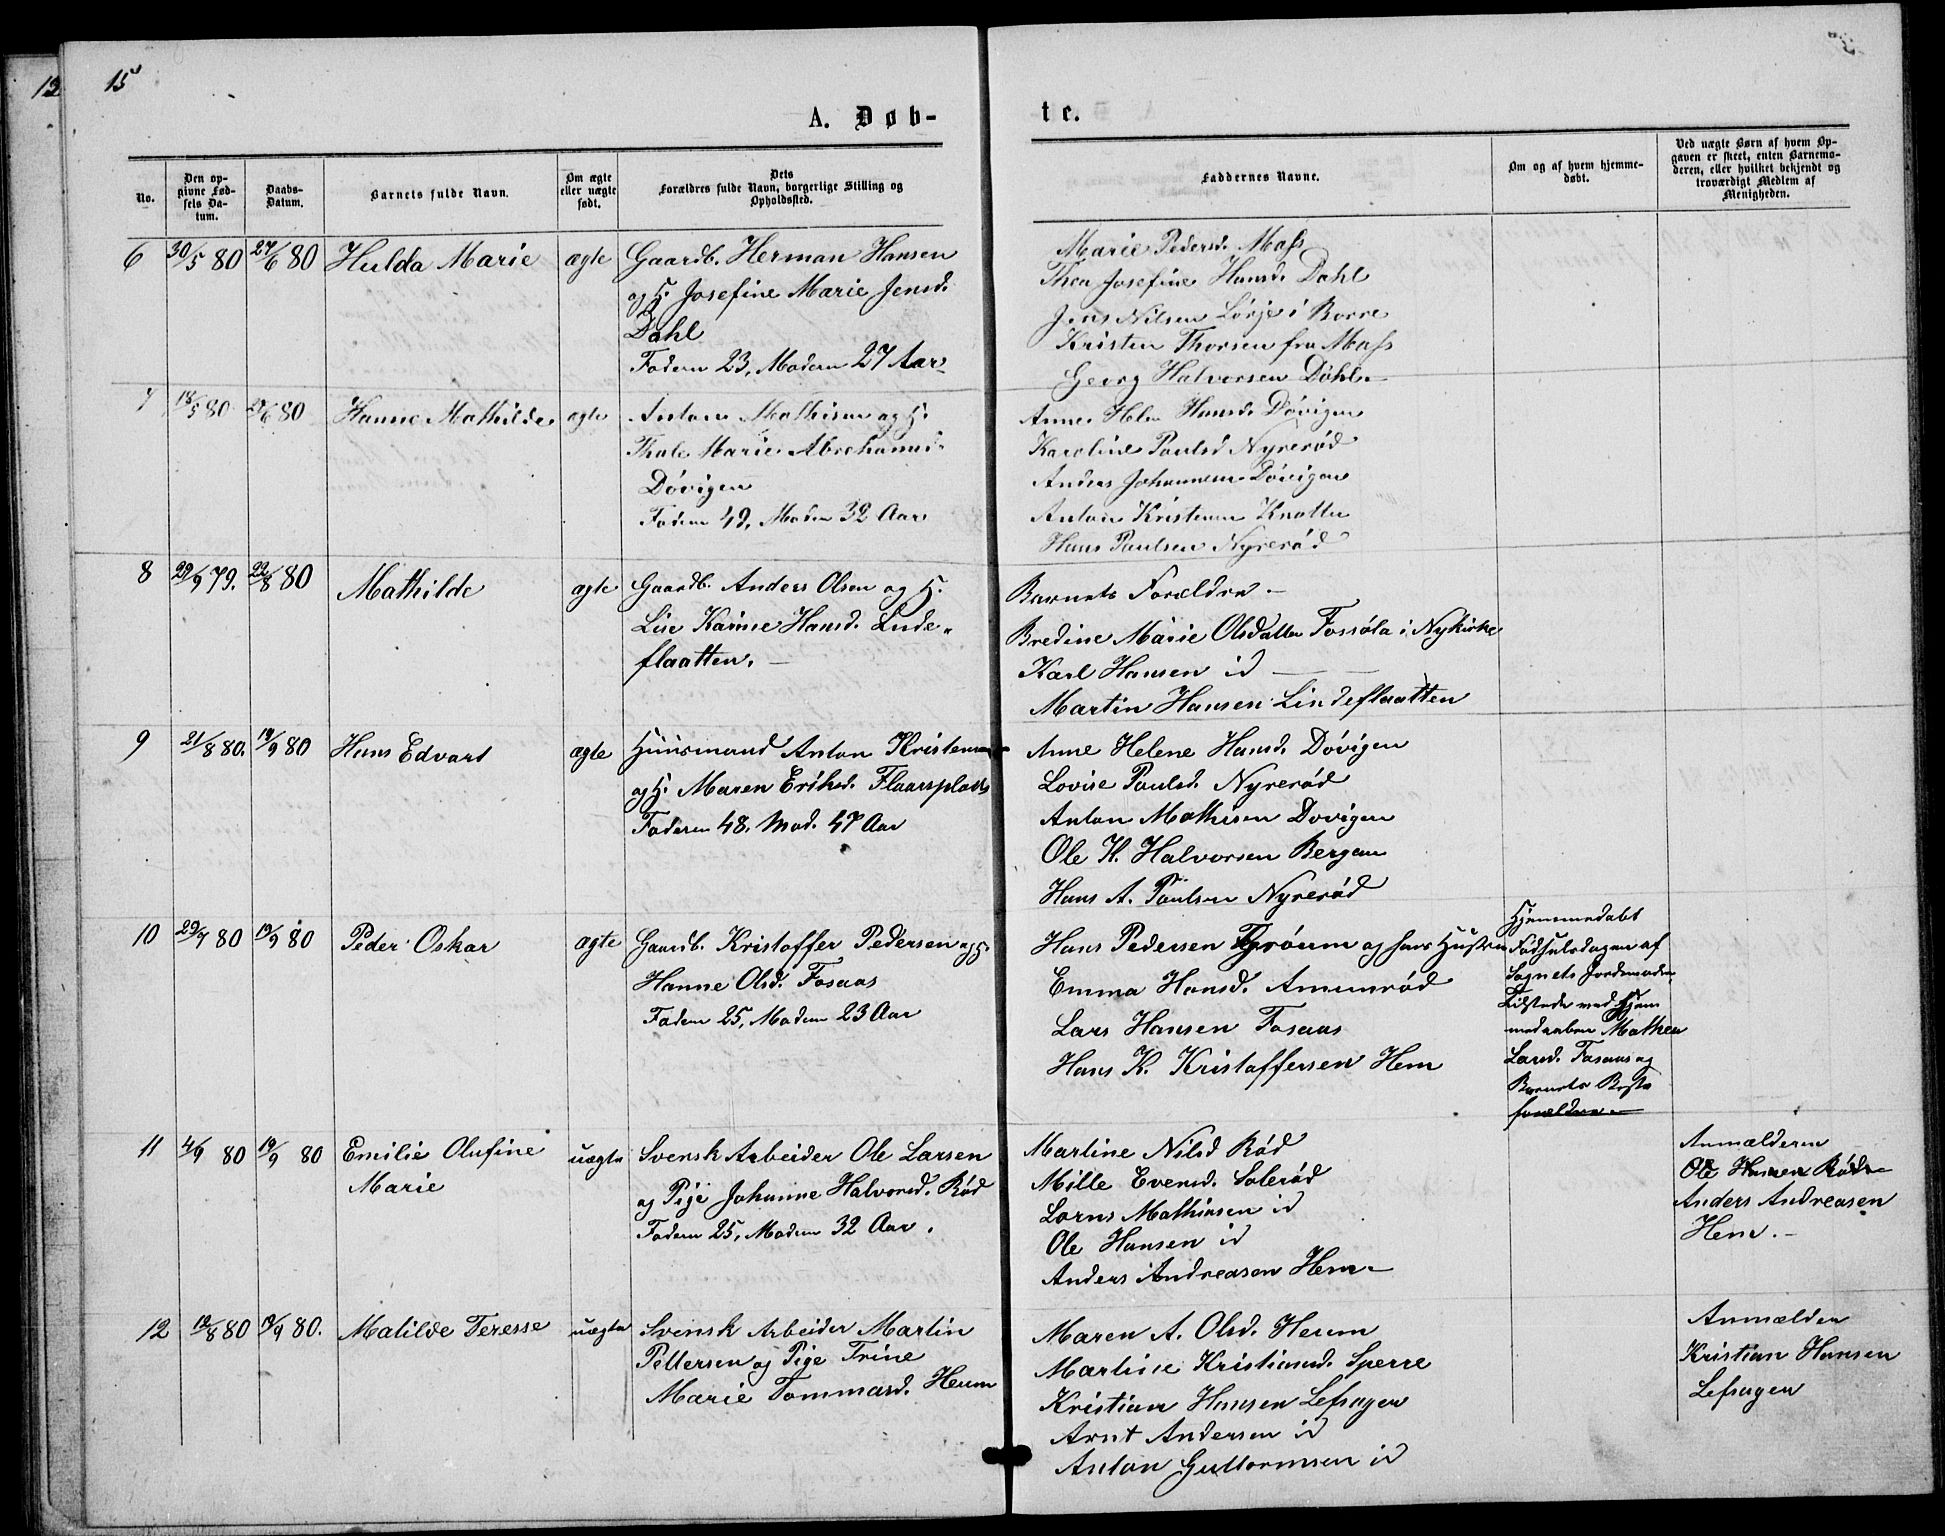 12
15
A. Døb-
te.
No.
Den op-
givne Fød-
sels Da-
tum.
Daabs-
Datum.
Barnets fulde Navn.
Om ægte
eller uægte
født.
Dets
Forældres fulde Navn, borgerlige Stilling og
Opholdssted.
Faddernes Navne.
Om og af hvem hjemme-
døbt.
Ved uægte Børn af hvem Op-
gaven er skeet, enten Barnemo-
deren, eller hvilket bekjendt og
troværdigt Medlem af
Menigheden.
6 30/5 80 27/6 80 Hulda Marie ægte
Gaardb. Herman Hansen
og H. Josefine Marie Jensd.
Dahl
Faderen 23, Moderen 27 Aar
Marie Pedersd. Mass
Thea Josefine Hansd. Dahl
Jens Nilsen Lørje i Borre
Kristen Thorsen fra Mass
Georg Halvorsen Dahl.
7 18/5 80 27/6 80 Hanne Mathilde ægte
Anton Mathisen og H.
Thale Marie Abrahamsd.
Døvigen
Faderen 49, Moderen 32 Aar
Anne Helene Hansd. Døvigen
Karoline Paulsd Nyrerød
Anders Johannesen Døvigen
Anton Kristensen Knatten
Hans Paulsen Nyrerød
8 29/9 79. 22/8 80 Mathilde ægte
Gaardb. Anders Olsen og H.
Lise Karine Hansd. Linde-
flaatten.
Barnets Forældre
Bredine Marie Olsdatter Fossøla i Nykirke
Karl Hansen id
Martin Hansen Lindeflaatten
9 21/8 80. 19/9 80 Hans Edvart ægte
Huusmand Anton Kristensen
og H. Maren Eriksd. Flaarsplads
Faderen 48, Mod. 47 Aar
Anne Helene Hansd. Døvigen
Lovise Paulsd. Nyrerød
Anton Mathisen Dovigen
Ole H. Halvorsen Bergan
Hans A. Paulsen Nyrerød
10 29/7 80 19/9 80 Peder Oskar ægte
Gaardb. Kristoffer Pedersen og H.
Hanne Olsd. Fosaas
Faderen 25, Moderen 23 Aar
Hans Pedersen og hans Hustru
Emma Hansd. Amunrød
Lars Hansen Fosaas
Hans K. Kristoffersen Hem
Hjemmedøbt
Fødselsdagen af
Sognets Jordemoder.
Tilstede ved Hjem
medaaben Mathea
Larsd. Fosaas og
Barnets Beste
forældre.
11 4/9 80 19/9 80 Emilie Olufine
Marie
uægte
Svensk Arbeider Ole Larsen
og Pige Johanne Halvorsd. Rød
Faderen 25, Moderen 32 Aar.
Martine Nilsd Rød
Mille Evensd. Solerød
Lorns Mathisen id
Ole Hansen id
Anders Andreasen Hem
Anmælderen
Ole Hansen Rød
Anders Andreasen
Hem.
12 12/8 80 19/9 80. Matilde Teresse uægte
Svensk Arbeider Martin
Pettersen og Pige Trine
Marie Tommasd. Herum
Maren A. Olsd. Herum
Martine Kristiansd. Sperre
Kristian Hansen Lefsagen
Arnt Andersen id
Anton Guttormsen id
Anmælderen
Kristian Hansen
Lefsagen